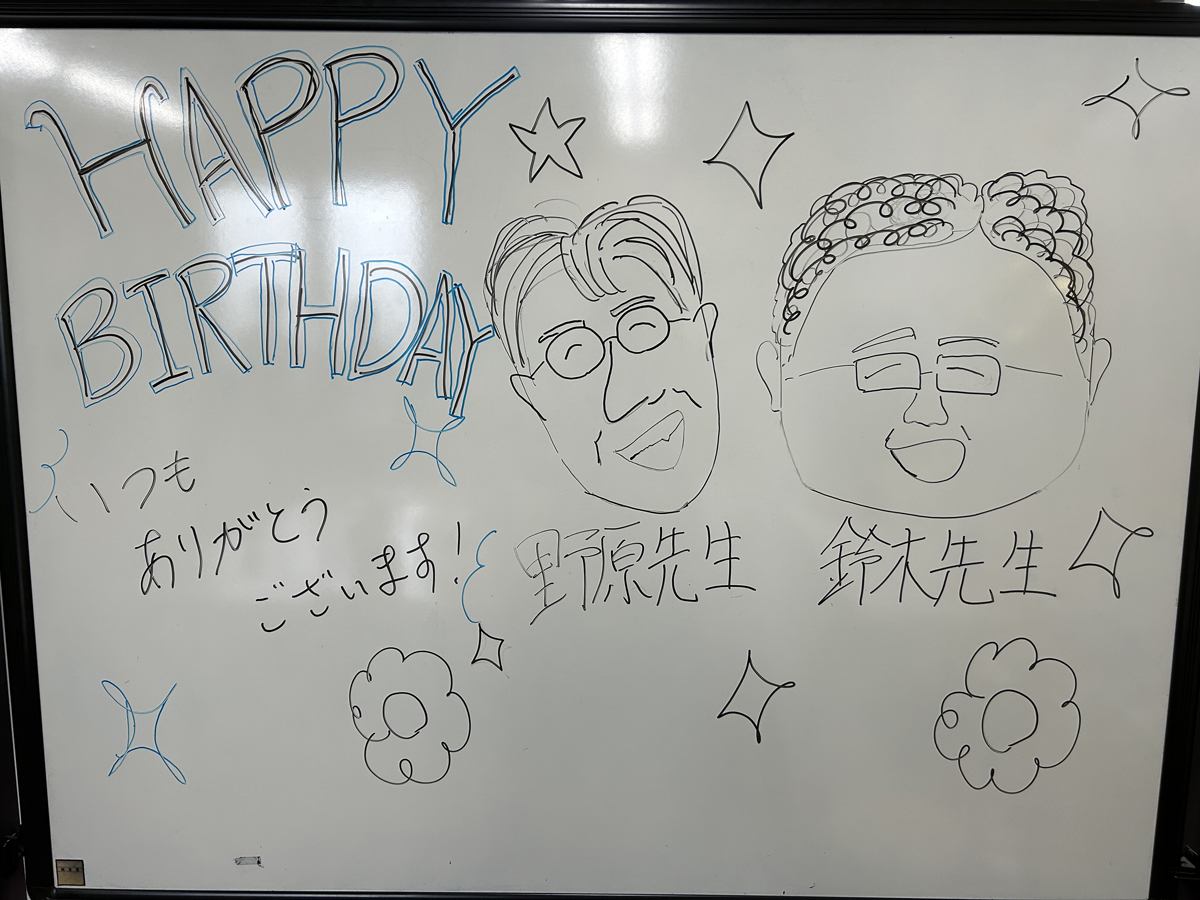 HAPPY
BIRTHDAY
いつも
ありがとう
ございます!
野原先生
鈴木先生